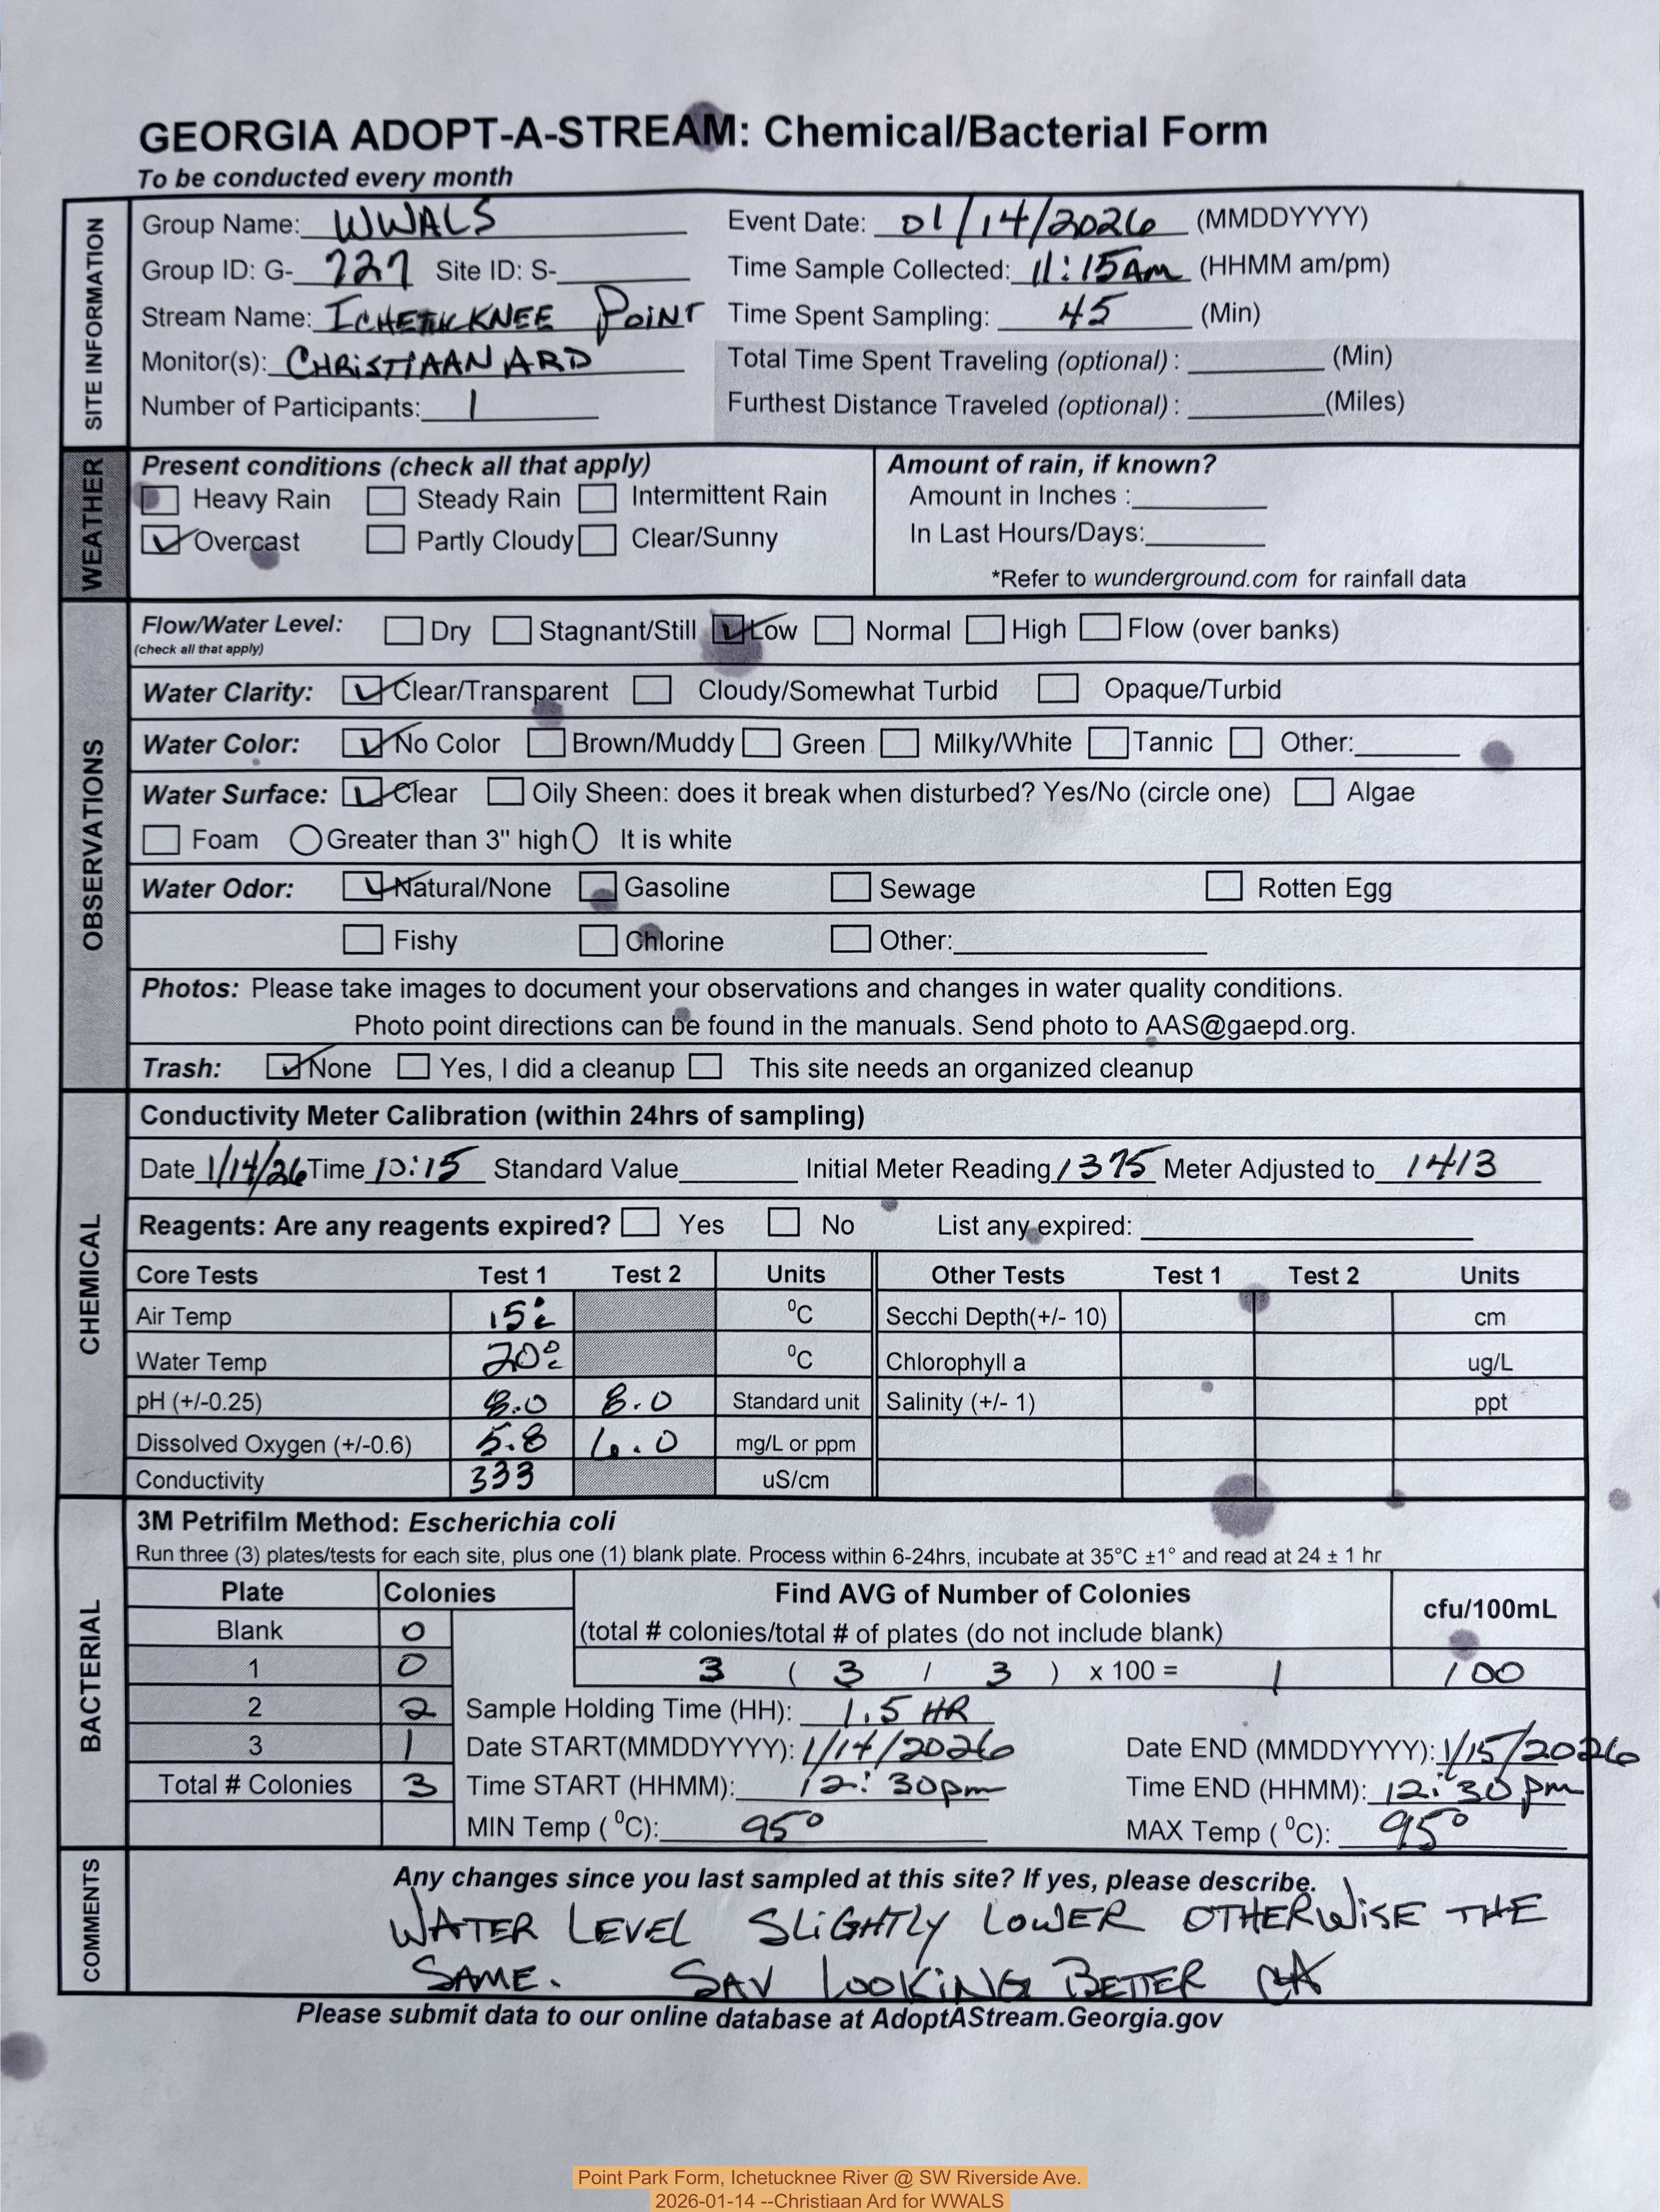 GEORGIA ADOPT-A-STREAM: Chemical/Bacterial Form
To be conducted every month
SITE INFORMATION
Group Name: WWALS Event Date: 01/14/2026 (MMDDYYYY)
Group ID: G- 727 Site ID: S- Time Sample Collected: 11:15Am (HHMM am/pm)
Stream Name: POINT Time Spent Sampling: 45 (Min)
Monitor(s): CHRISTIAAN ARD Total Time Spent Traveling (optional) : (Min)
Number of Participants: 1 Furthest Distance Traveled (optional) : (Miles)
WEATHER
Present conditions (check all that apply) Amount of rain, if known?
Heavy Rain Steady Rain Intermittent Rain Amount in Inches :
Overcast Partly Cloudy Clear/Sunny In Last Hours/Days:
*Refer to wunderground.com for rainfall data
OBSERVATIONS
Flow/Water Level: Dry Stagnant/Still Low Normal High Flow (over banks)
(check all that apply)
Water Clarity: Clear/Transparent Cloudy/Somewhat Turbid Opaque/Turbid
Water Color: No Color Brown/Muddy Green Milky/White Tannic Other:
Water Surface: Clear Oily Sheen: does it break when disturbed? Yes/No (circle one) Algae
Foam Greater than 3" high It is white
Water Odor: Natural/None Gasoline Sewage Rotten Egg
Fishy Chlorine Other:
Photos: Please take images to document your observations and changes in water quality conditions.
Photo point directions can be found in the manuals. Send photo to AAS@gaepd.org.
Trash: None Yes, I did a cleanup This site needs an organized cleanup
CHEMICAL
Conductivity Meter Calibration (within 24hrs of sampling)
Date 1/14/26 Time 10:15 Standard Value Initial Meter Reading 1375 Meter Adjusted to 1413
Reagents: Are any reagents expired? Yes No List any expired:
Core Tests Test 1 Test 2 Units Other Tests Test 1 Test 2 Units
Air Temp 15°c °C Secchi Depth(+/- 10) cm
Water Temp 20°c °C Chlorophyll a ug/L
pH (+/-0.25) 8.0 8.0 Standard unit Salinity (+/- 1) ppt
Dissolved Oxygen (+/-0.6) 5.8 6.0 mg/L or ppm
Conductivity 333 uS/cm
BACTERIAL
3M Petrifilm Method: Escherichia coli
Run three (3) plates/tests for each site, plus one (1) blank plate. Process within 6-24hrs, incubate at 35°C ±1° and read at 24 ± 1 hr
Plate Colonies Find AVG of Number of Colonies cfu/100mL
Blank 0 (total # colonies/total # of plates (do not include blank)
1 0 3 ( 3 / 3 ) x 100 = 1 100
2 2 Sample Holding Time (HH): 1.5 HR
3 1 Date START(MMDDYYYY): 1/14/2026 Date END (MMDDYYYY): 1/15/2026
Total # Colonies 3 Time START (HHMM): 12:30pm Time END (HHMM): 12:30pm
MIN Temp ( °C): 95° MAX Temp ( °C): 95°
COMMENTS
Any changes since you last sampled at this site? If yes, please describe.
WATER LEVEL SLIGHTLY LOWER OTHERWISE THE
SAME. SAV LOOKING BETTER CA
Please submit data to our online database at AdoptAStream.Georgia.gov
Point Park Form, Ichetucknee River @ SW Riverside Ave.
2026-01-14 --Christiaan Ard for WWALS